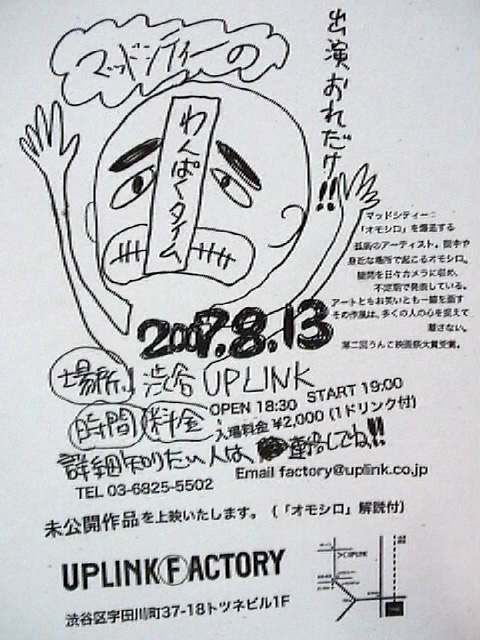 マッドシティーの
わんぱくタイム
出演おれだけ!!
マッドシティー：
「オモシロ」を爆走する
孤高のアーティスト。街中や
身近な場所で起こるオモシロ。
疑問を日々カメラに収め、
不定期で発表している。
アートともお笑いとも一線を画す
その作風は、多くの人の心を捉えて
離さない。
第二回うんこ映画祭大賞受賞。
2007.8.13
場所 渋谷 UPLINK
時間 料金 OPEN 18:30 START 19:00
入場料金 ¥2,000 (1ドリンク付)
詳細知りたい人は、連絡してね!!
TEL 03-6825-5502 Email factory@uplink.co.jp
未公開作品を上映いたします。(「オモシロ」解説付)
UPLINK FACTORY
渋谷区宇田川町37-18トツネビル1F